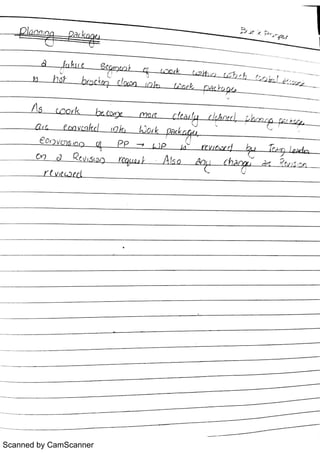 Planning package
a future segment of work within which
is not broken down into work package
As work become more clearly defined planning package
are converted into work package
conversion of PP → WP is reviewed by Team Leader
on a Revision request. Also Any change
reviewed
Scanned by CamScanner